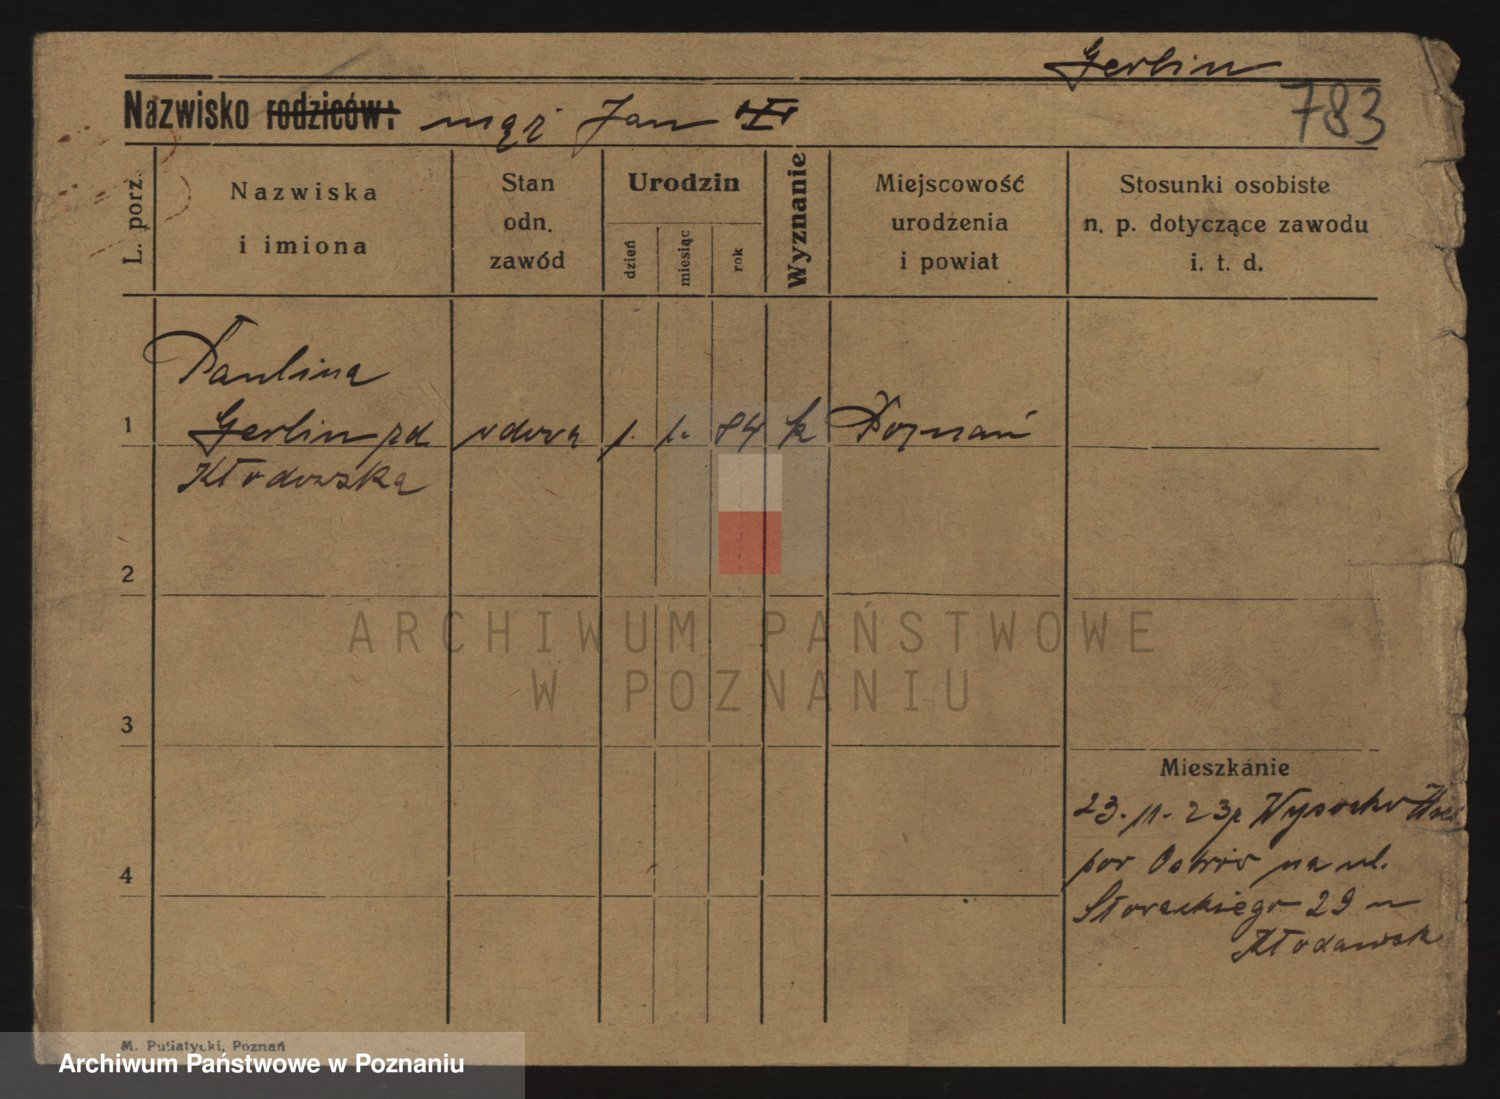 Gerlin
783
Nazwisko rodziców: mąż Jan
L. porz.
Nazwiska
i imiona
Stan
odn.
zawód
Urodzin
dzień
miesiąc
rok
Wyznanie
Miejscowość
urodzenia
i powiat
Stosunki osobiste
n. p. dotyczące zawodu
i. t. d.
Paulina
1 Gerlin zd wdowa 1. 1. 84 k Poznań
Kłodowska
2
3
4
ARCHIWUM PAŃSTWOWE
W POZNANIU
Mieszkanie
23. 11. 23 z Wysocko
pow Ostrów na ul.
Słowackiego 29 u
M. Putiatycki, Poznań
Archiwum Państwowe w Poznaniu